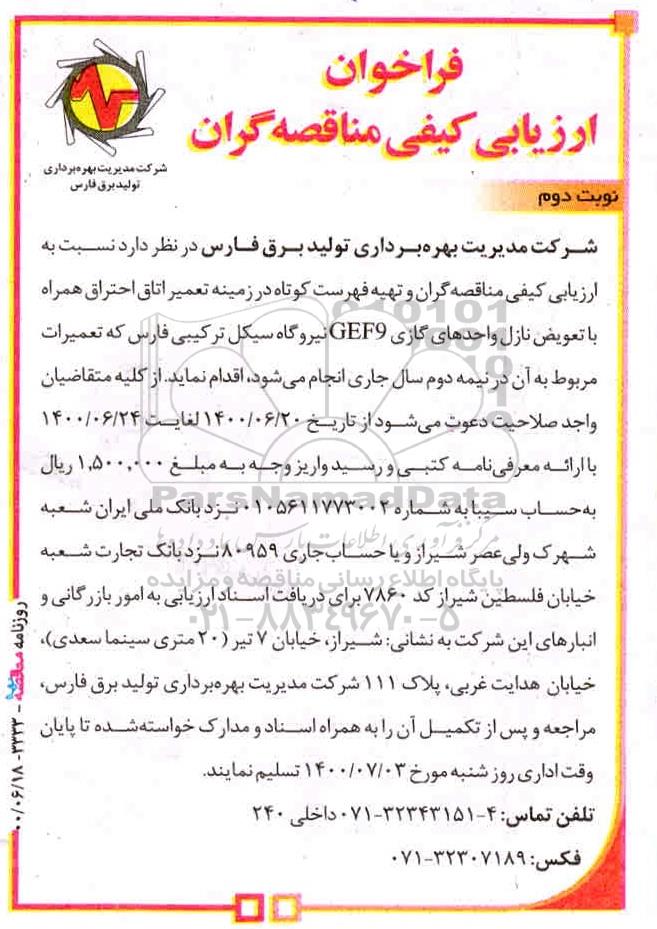 فراخوان
ارزیابی کیفی مناقصه‌گران
شرکت مدیریت بهره‌برداری
تولید برق فارس
نوبت دوم
شرکت مدیریت بهره‌برداری تولید برق فارس در نظر دارد نسبت به
ارزیابی کیفی مناقصه‌گران و تهیه فهرست کوتاه در زمینه تعمیر اتاق احتراق همراه
با تعویض نازل واحدهای گازی GEF9 نیروگاه سیکل ترکیبی فارس که تعمیرات
مربوط به آن در نیمه دوم سال جاری انجام می‌شود، اقدام نماید. از کلیه متقاضیان
واجد صلاحیت دعوت می‌شود از تاریخ ۱۴۰۰/۰۶/۲۰ لغایت ۱۴۰۰/۰۶/۲۴
با ارائه معرفی‌نامه کتبی و رسید واریز وجه به مبلغ ۱,۵۰۰,۰۰۰ ریال
به حساب سیبا به شماره ۰۱۰۵۶۱۱۷۷۳۰۰۲ نزد بانک ملی ایران شعبه
شهرک ولی‌عصر شیراز و یا حساب جاری ۸۰۹۵۹ نزد بانک تجارت شعبه
خیابان فلسطین شیراز کد ۷۸۶۰ برای دریافت اسناد ارزیابی به امور بازرگانی و
انبارهای این شرکت به نشانی: شیراز، خیابان ۷ تیر (۲۰ متری سینما سعدی)،
خیابان هدایت غربی، پلاک ۱۱۱ شرکت مدیریت بهره‌برداری تولید برق فارس،
مراجعه و پس از تکمیل آن را به همراه اسناد و مدارک خواسته‌شده تا پایان
وقت اداری روز شنبه مورخ ۱۴۰۰/۰۷/۰۳ تسلیم نمایند.
تلفن تماس: ۴-۳۲۳۴۳۱۵۱-۰۷۱ داخلی ۲۴۰
فکس: ۳۲۳۰۷۱۸۹-۰۷۱
روزنامه مناقصه - ۳۳۳۲ - ۰۰/۰۶/۱۸
ParsNamadData
پایگاه اطلاع رسانی مناقصه و مزایده
۰۲۱-۸۸۳۴۹۶۷۰-۵